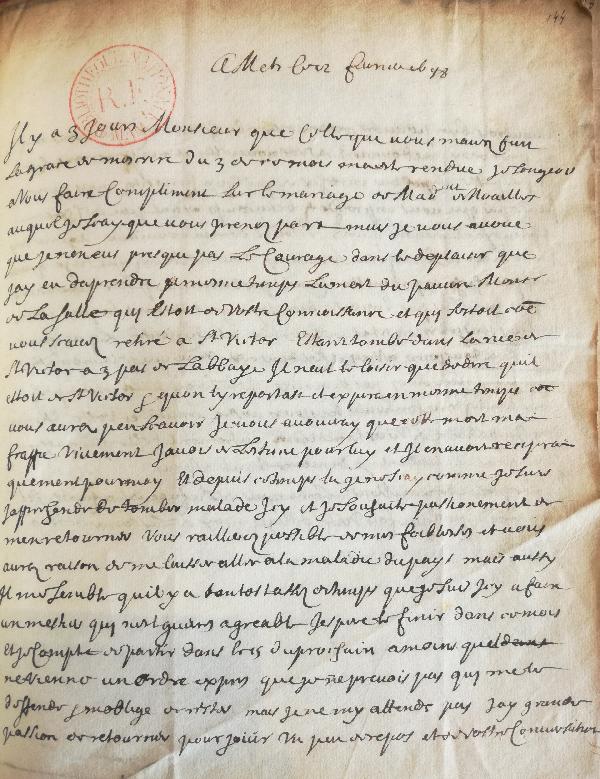 144
BIBLIOTHEQUE NATIONALE
R.F.
A Mets ce 12
Il y a 3 Jours Monsieur que Celle que vous mavez fait
la grace de mecrire du 3 de ce mois ma este rendue Je songeois
a Vous faire Compliment sur le mariage de Mad de Noailles
auquel Je scay que vous prenez part mais Je vous avoue
que Je nen eus presque pas le Courage dans le deplaisir que
Jay eu daprendre en mesme temps la mort du pauvre Monsr
de La Salle qui estoit de vostre Connoissance et qui sestoit
vous scavez retiré a St Victor Estant tombé dans la rue de
St Victor a 3 pas de Labbaye Il neut le loisir que de dire quil
estoit de St Victor quon ly reportast et expira en mesme temps
vous aurez peu scavoir Je vous avoueray que cette mort ma
frappé Vivement Javois de lestime pour luy et Il en avoit recipro
quement pour moy Et depuis ce temps la Je ne scay comme Je suis
Japprehende de tomber malade Icy et Je souhaite passionement de
men retourner Vous raillerez possible de mes foiblesses et vous
aurez raison de me laisser aller a la maladie du pays mais aussy
Il me semble quil y a tantost assez de temps que Je suis Icy a faire
un mestier qui nest guieres agreable Jespere le finir dans ce mois
Et Je Compte de partir dans le 15 du prochain a moins que
ne vienne un ordre expres que Je ne prevois pas qui me le
deffende moblige de rester mais Je ne my attends pas Jay grande
passion de retourner pour Joüir Un peu de repos et de vostre Conversation